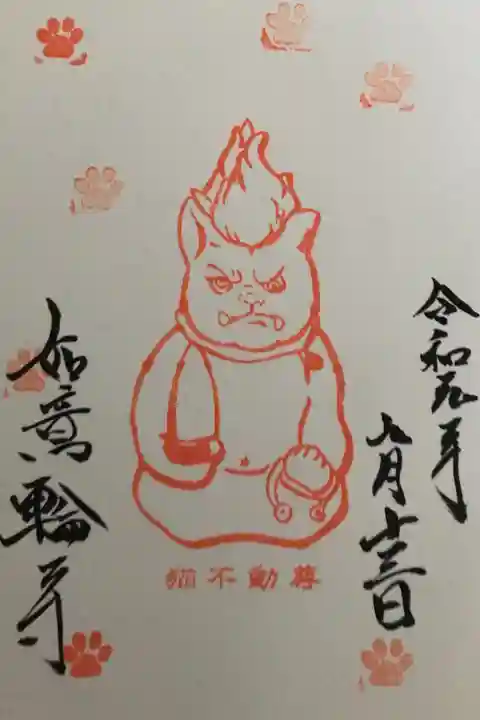 令和元年
九月十三日
猫不動尊
如意輪寺